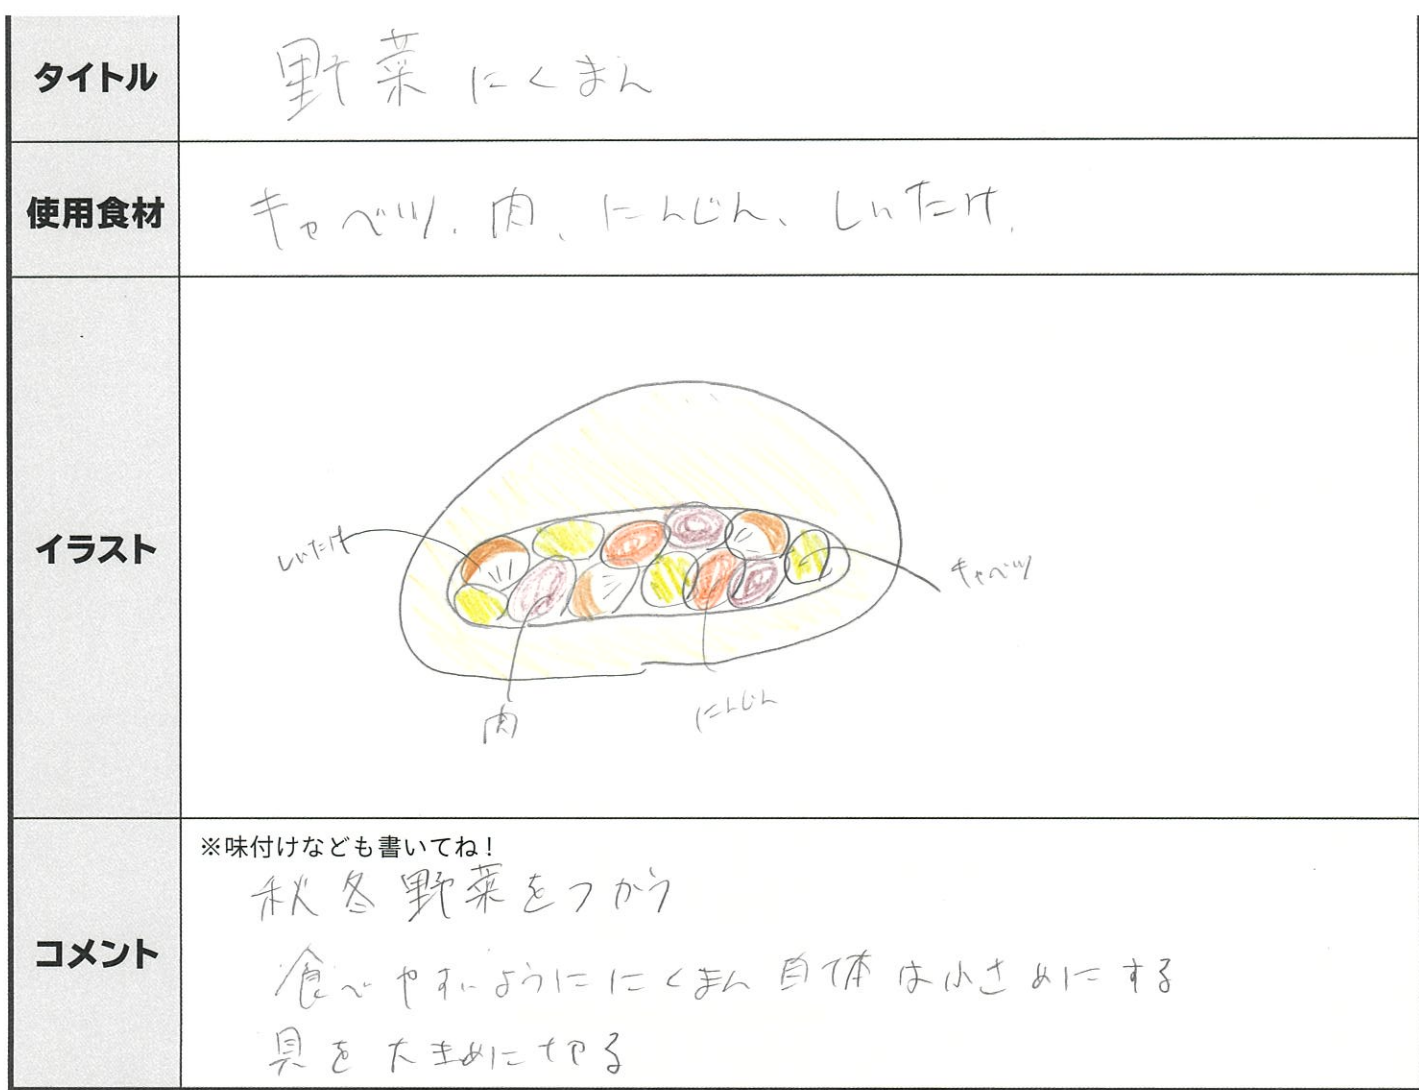 タイトル
野菜にくまん
使用食材
キャベツ、肉、にんじん、しいたけ
イラスト
しいたけ
キャベツ
肉
にんじん
コメント
※味付けなども書いてね!
秋冬野菜をつかう
食べやすいようににくまん自体は小さめにする
具を大きめに切る